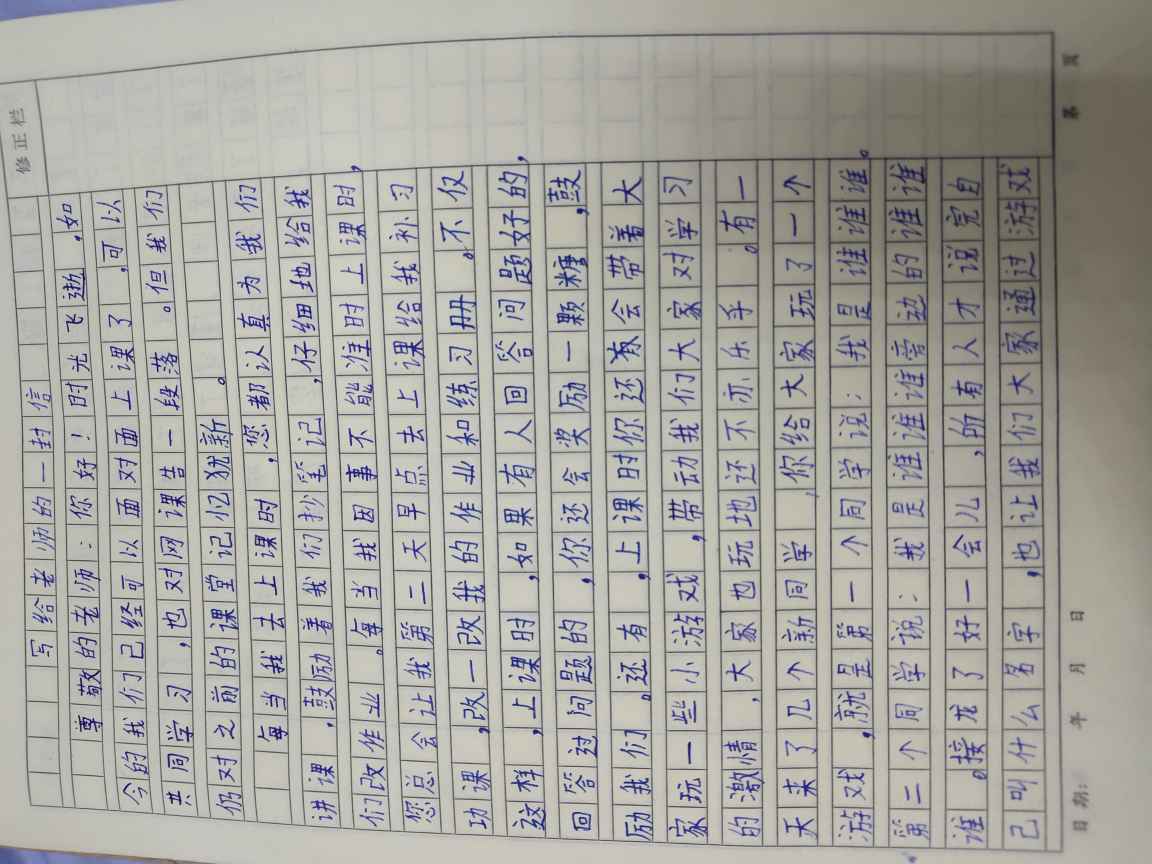 修正栏
写给老师的一封信
尊敬的老师：你好！时光飞逝，如
今的我们已经可以面对面上课了，可以
共同学习，也对网课告一段落。但我们
仍对之前的课堂记忆犹新。
每当我去上课时，您都认真为我们
讲课，鼓励着我们抄笔记，仔细地给我
们改作业。每当我因事不能准时上课时，
您总会让我第二天早点去上课给我补习
功课，改一改我的作业和练习册。不仅
这样，上课时，如果有人回答问题好的，
回答过问题的，你还会奖励一颗糖，鼓
励我们。还有，上课时你还会带着大
家玩一些小游戏，带动我们大家对学习
的激情，大家也玩地还不亦乐乎。有一
天来了几个新同学，你给大家玩了一个
游戏，就是第一个同学说：我是谁谁谁。
第二个同学说：我是谁谁谁旁边的谁谁
谁。接龙了好一会儿，所有人才说完自
己叫什么名字，也让我们大家通过游戏
日期： 年 月 日 第 页